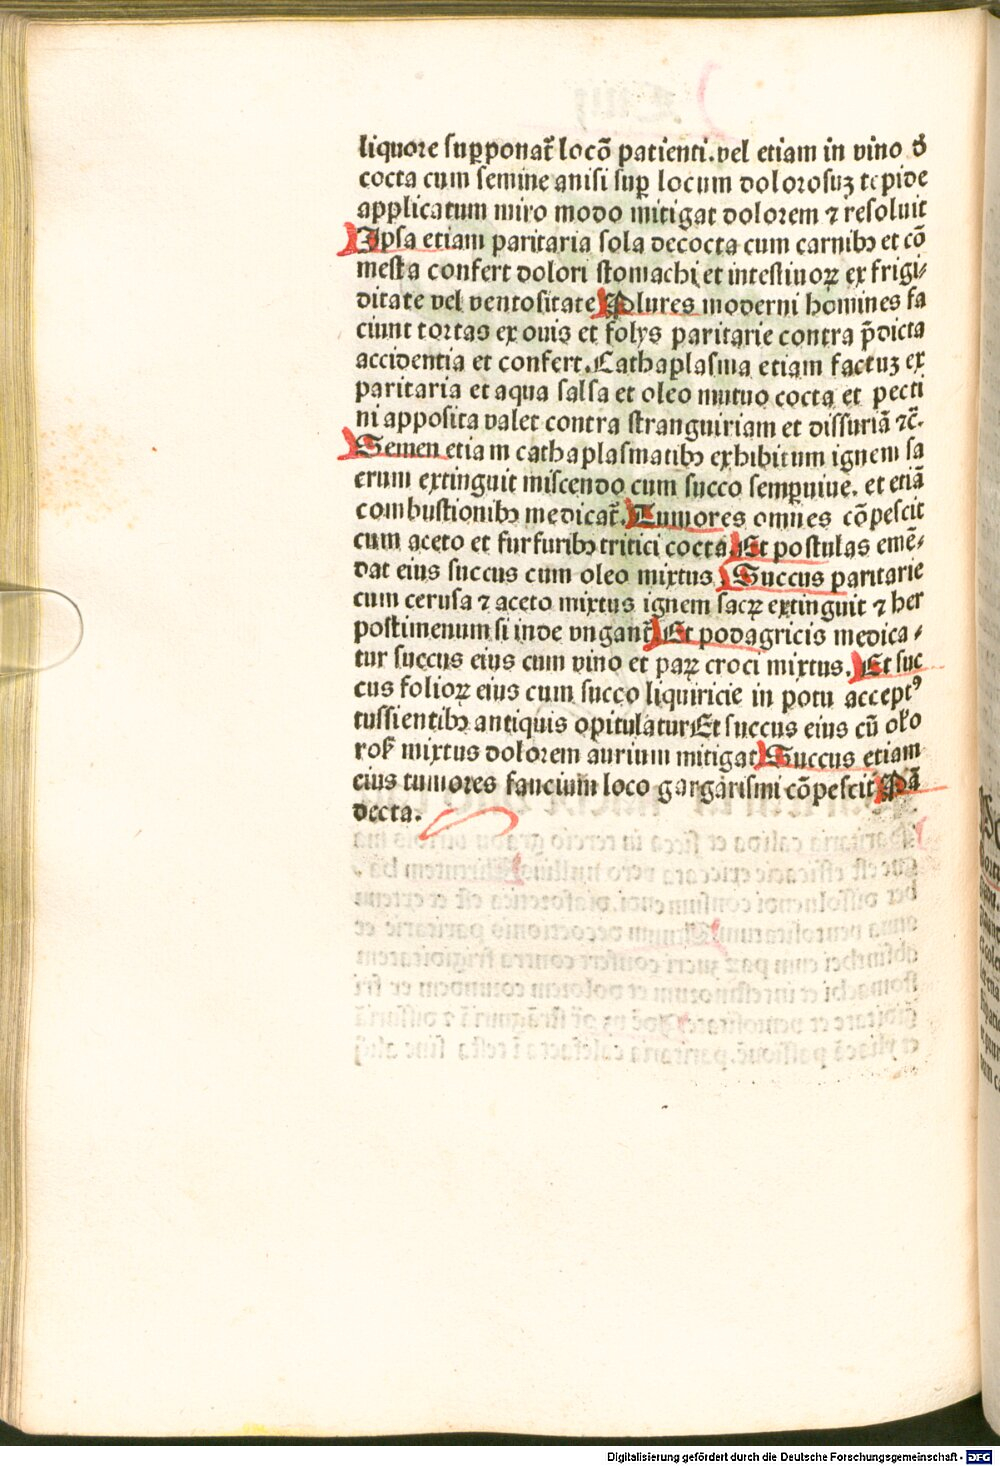 liquore suꝑponat᷑ locō patienti. vel etiam in vino d̄
cocta cum semine anisi suꝑ locum dolorosuꝫ tepide
applicatum miro modo mitigat dolorem ⁊ resoluit
Ipsa etiam paritaria sola decocta cum carnibꝫ et cō
mesta confert dolori stomachi et intestinoꝝ ex frigi⸗
ditate vel ventositate Plures moderni homines fa
ciunt tortas ex ouis et folys paritarie contra p̄dicta
accidentia et confert. Cathaplasma etiam factuꝫ ex
paritaria et aqua salsa et oleo mutuo cocta et pecti
ni apposita valet contra stranguiriam et dissuriā ⁊c̄.
Semen etiam cathaplasmatibꝫ exhibitum ignem sa
crum extinguit miscendo cum succo semꝑuiue. et etiā
combustionibꝫ medicat᷑. Tumores omnes cōpescit
cum aceto et furfuribꝫ tritici cocta. Et postulas emē⸗
dat eius succus cum oleo mixtus. Succus paritarie
cum cerusa ⁊ aceto mixtus ignem sacꝝ extinguit ⁊ her
postimenum si inde vngant᷑ Et podagricis medica⸗
tur succus eius cum vino et paꝝ croci mixtus. Et suc
cus folioꝝ eius cum succo liquiricie in potu acceptꝰ
tussientibꝫ antiquis opitulatur Et succus eius cū oleo
roſ mixtus dolorem aurium mitigat Succus etiam
eius tumores faucium loco gargarismi cōpescit Pā
decta.
Digitalisierung gefördert durch die Deutsche Forschungsgemeinschaft - DFG